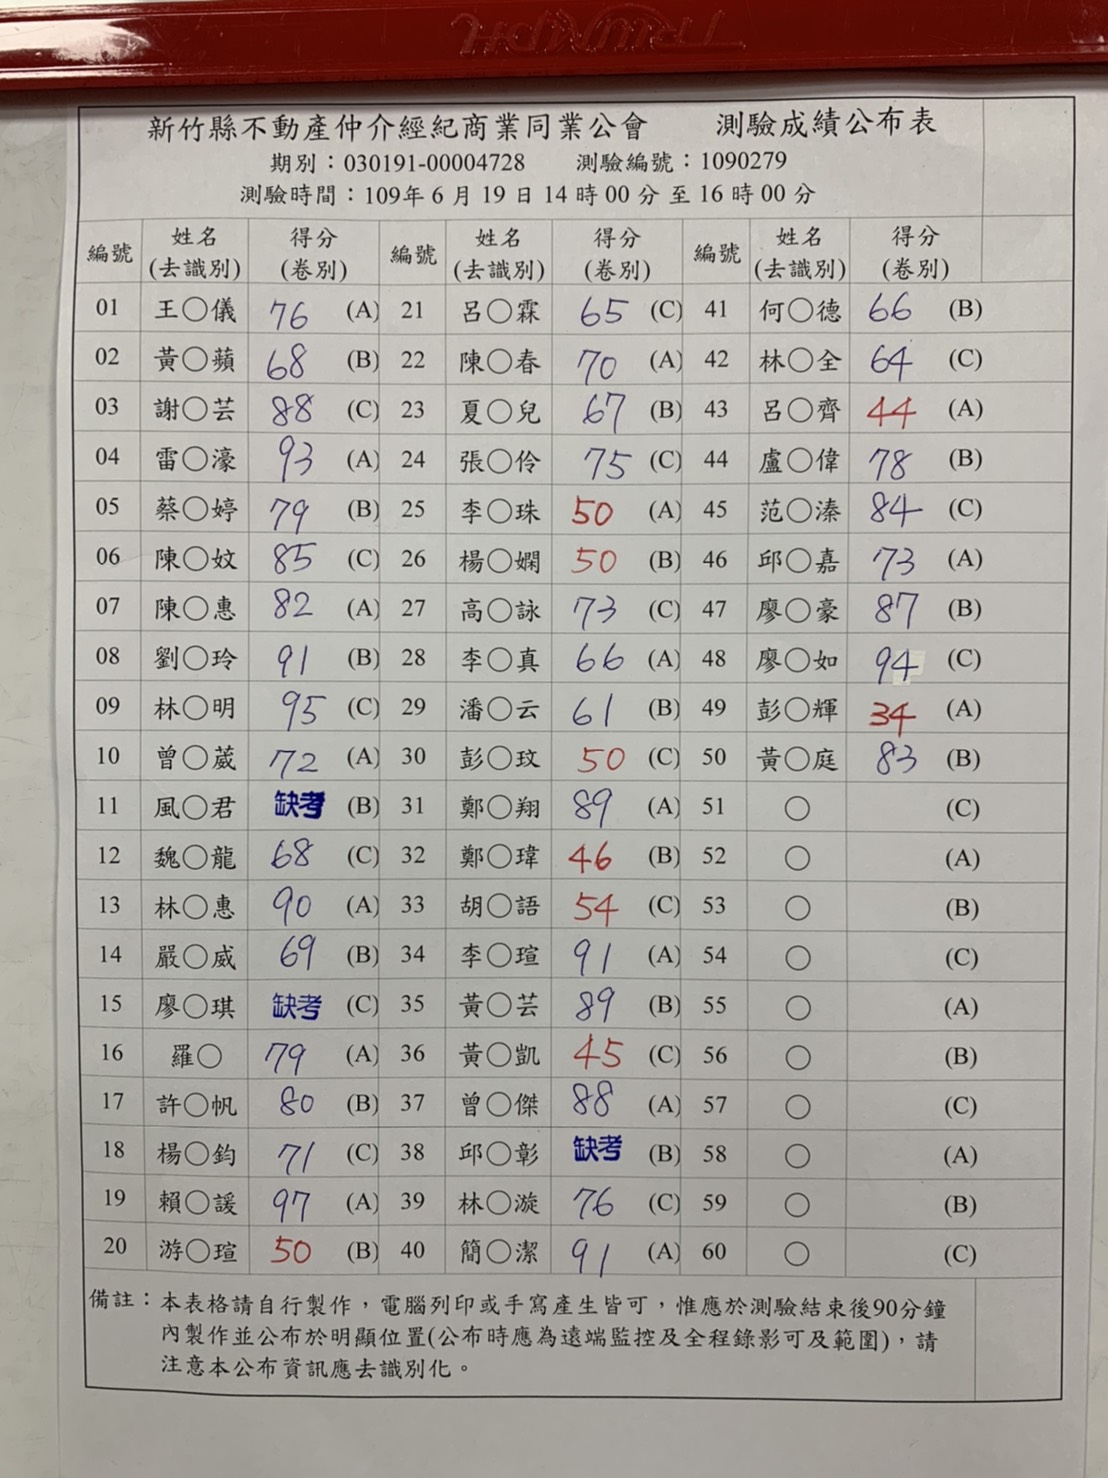 新竹縣不動產仲介經紀商業同業公會 測驗成績公布表
期別：030191-00004728 測驗編號：1090279
測驗時間：109年 6 月 19 日 14 時 00 分 至 16 時 00 分
編號 姓名(去識別) 得分(卷別) 編號 姓名(去識別) 得分(卷別) 編號 姓名(去識別) 得分(卷別)
01 王〇儀 76 (A) 21 呂〇霖 65 (C) 41 何〇德 66 (B)
02 黃〇蘋 68 (B) 22 陳〇春 70 (A) 42 林〇全 64 (C)
03 謝〇芸 88 (C) 23 夏〇兒 67 (B) 43 呂〇齊 44 (A)
04 雷〇濠 93 (A) 24 張〇伶 75 (C) 44 盧〇偉 78 (B)
05 蔡〇婷 79 (B) 25 李〇珠 50 (A) 45 范〇溱 84 (C)
06 陳〇妏 85 (C) 26 楊〇嫻 50 (B) 46 邱〇嘉 73 (A)
07 陳〇惠 82 (A) 27 高〇詠 73 (C) 47 廖〇豪 87 (B)
08 劉〇玲 91 (B) 28 李〇真 66 (A) 48 廖〇如 94 (C)
09 林〇明 95 (C) 29 潘〇云 61 (B) 49 彭〇輝 34 (A)
10 曾〇葳 72 (A) 30 彭〇玟 50 (C) 50 黃〇庭 83 (B)
11 風〇君 缺考 (B) 31 鄭〇翔 89 (A) 51 〇 (C)
12 魏〇龍 68 (C) 32 鄭〇瑋 46 (B) 52 〇 (A)
13 林〇惠 90 (A) 33 胡〇語 54 (C) 53 〇 (B)
14 嚴〇威 69 (B) 34 李〇瑄 91 (A) 54 〇 (C)
15 廖〇琪 缺考 (C) 35 黃〇芸 89 (B) 55 〇 (A)
16 羅〇 79 (A) 36 黃〇凱 45 (C) 56 〇 (B)
17 許〇帆 80 (B) 37 曾〇傑 88 (A) 57 〇 (C)
18 楊〇鈞 71 (C) 38 邱〇彰 缺考 (B) 58 〇 (A)
19 賴〇諼 97 (A) 39 林〇漩 76 (C) 59 〇 (B)
20 游〇瑄 50 (B) 40 簡〇潔 91 (A) 60 〇 (C)
備註：本表格請自行製作，電腦列印或手寫產生皆可，惟應於測驗結束後90分鐘
內製作並公布於明顯位置(公布時應為遠端監控及全程錄影可及範圍)，請
注意本公布資訊應去識別化。